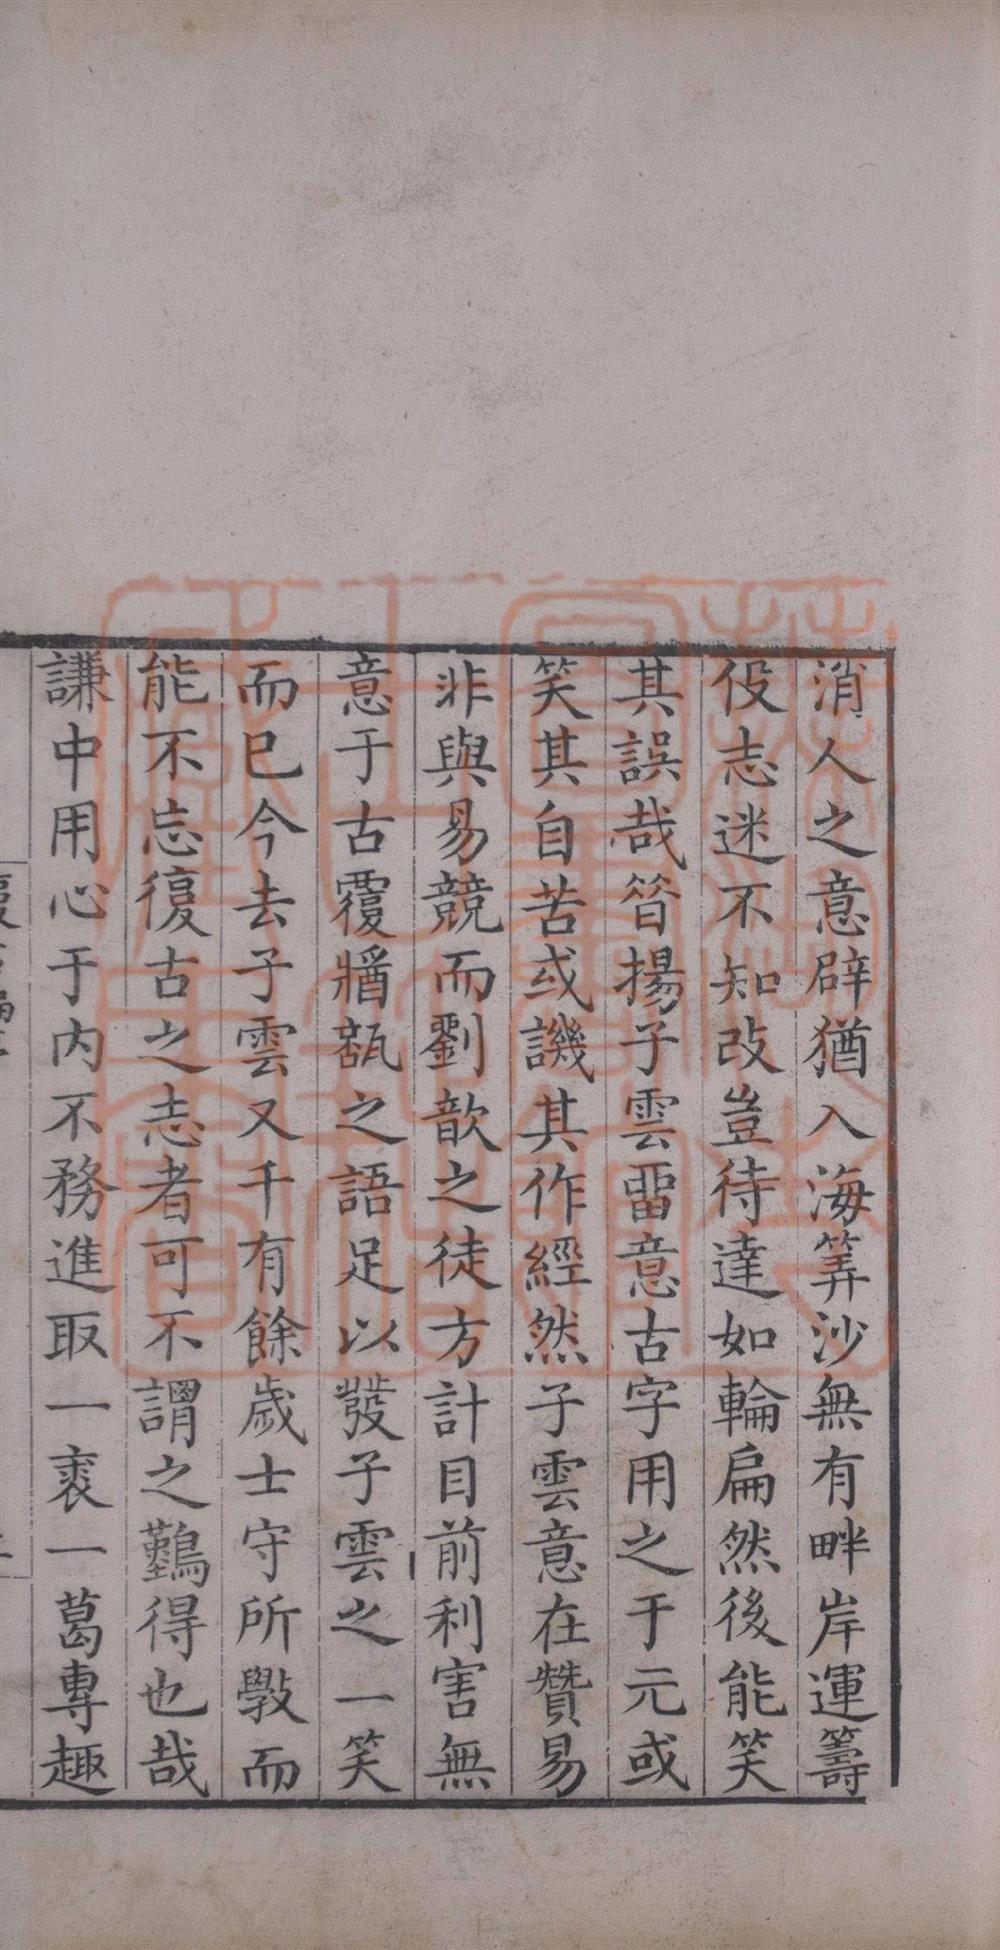 消人之意辟猶入海筭沙無有畔岸運籌
役志迷不知改豈待達如輪扁然後能笑
其誤哉昝揚子雲畱意古字用之于元或
笑其自苦或譏其作經然子雲意在贊易
非與易競而劉歆之徒方計目前利害無
意于古覆牆瓿之語足以發子雲之一笑
而已今去子雲又千有餘歲士守所斅而
能不忘復古之志者可不謂之鷬得也哉
謙中用心于內不務進取一裘一葛專趣
復古編序